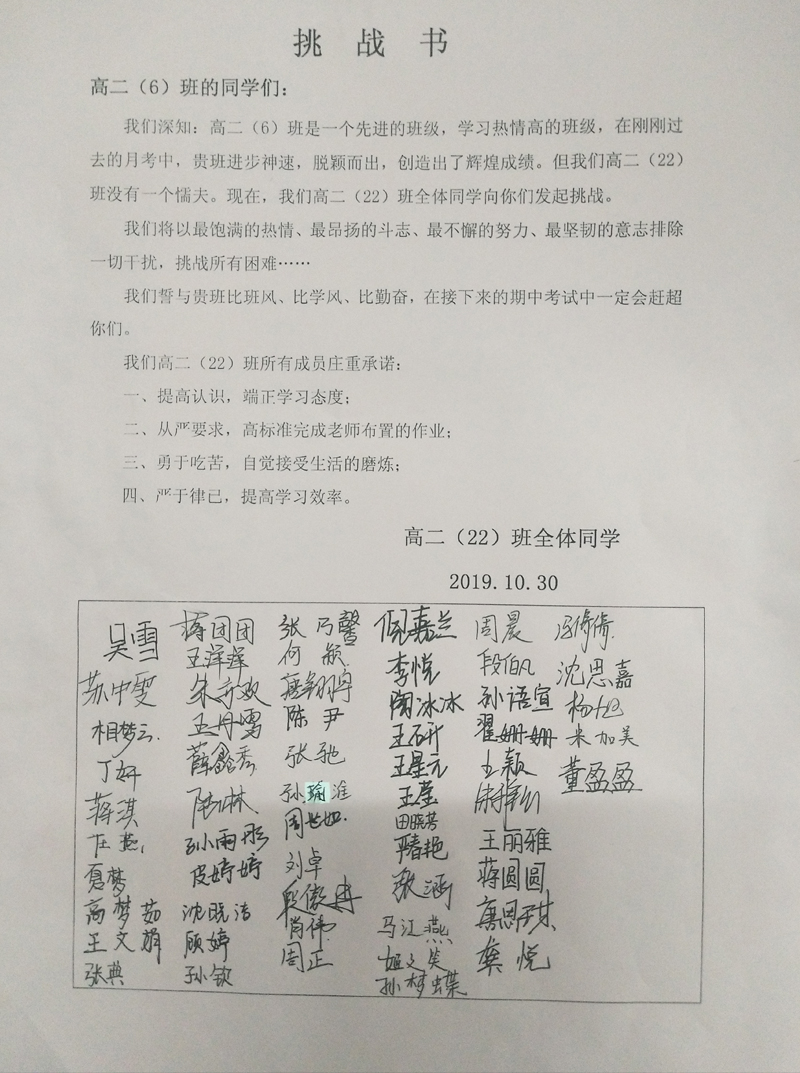 挑 战 书
高二（6）班的同学们：
我们深知：高二（6）班是一个先进的班级，学习热情高的班级，在刚刚过
去的月考中，贵班进步神速，脱颖而出，创造出了辉煌成绩。但我们高二（22）
班没有一个懦夫。现在，我们高二（22）班全体同学向你们发起挑战。
我们将以最饱满的热情、最昂扬的斗志、最不懈的努力、最坚韧的意志排除
一切干扰，挑战所有困难……
我们誓与贵班比班风、比学风、比勤奋，在接下来的期中考试中一定会赶超
你们。
我们高二（22）班所有成员庄重承诺：
一、提高认识，端正学习态度；
二、从严要求，高标准完成老师布置的作业；
三、勇于吃苦，自觉接受生活的磨炼；
四、严于律已，提高学习效率。
高二（22）班全体同学
2019.10.30
吴雪
苏中雯
相梦云
丁妍
蒋淇
夏梦
高梦茹
王文娟
张典
蒋团团
王洋洋
王丹雪
薛鑫秀
陆琳
孙雨彤
皮婷婷
沈晓洁
顾婷
孙钦
张乃馨
何颖
陈尹
张驰
刘卓
肖伟
周正
李悦
陶冰冰
王石开
王星元
王莹
田晓芳
马江燕
姬文笑
孙梦蝶
周晨
段伯凡
孙语宣
翟姗姗
王颖
王丽雅
蒋圆圆
龚悦
冯倩倩
沈思嘉
杨旭
朱加美
董盈盈